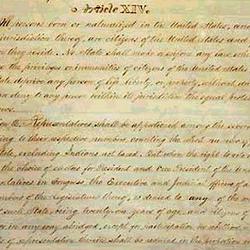 Article XIV.
persons born or naturalized in the United States, and
jurisdiction thereof, are citizens of the United States and
they reside. No State shall make or enforce any law
the privileges or immunities of citizens of the United
deprive any person of life, liberty, or property, without
deny to any person within its jurisdiction the equal
Representatives shall be apportioned among the
to their respective numbers, counting the whole
excluding Indians not taxed. But when the right to
the choice of electors for President and Vice President of the
in Congress, the Executive and Judicial officers
members of the Legislature thereof, is denied to any of the
of such State, being twenty-one years of age, and citizens
in any way abridged, except for participation in
of representation therein shall be reduced in the